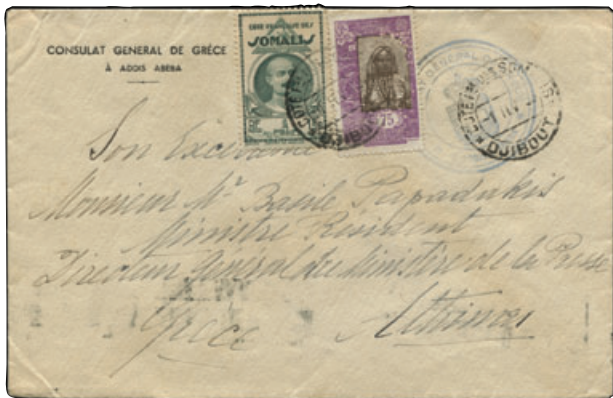 CONSULAT GENERAL DE GRÉCE
À ADDIS ABEBA
COTE FRANÇAISE DES
SOMALIS
75
DJIBOUTI
DJIBOUTI
Son Excellence
Monsieur Mr Basile Papadakis
Ministre Résident
Directeur General du Ministère de la Presse
Grèce Athènes